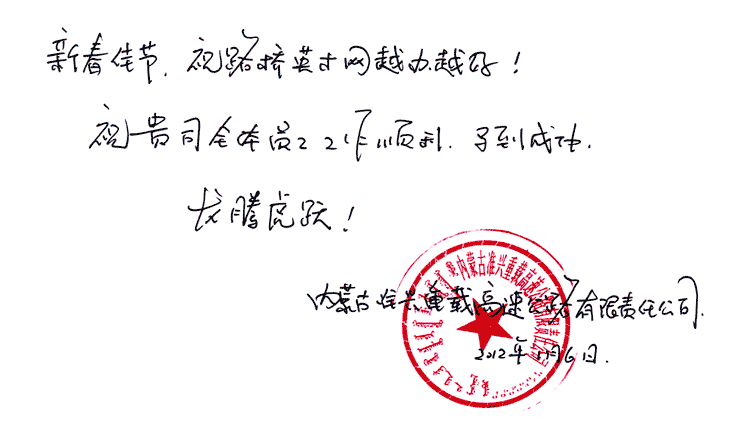 新春佳节，祝路桥英才网越办越好！
祝贵司全体员工工作顺利，马到成功，
龙腾虎跃！
内蒙古准兴重载高速公路有限责任公司
内蒙古准兴重载高速公路有限责任公司．
2012年1月6日．